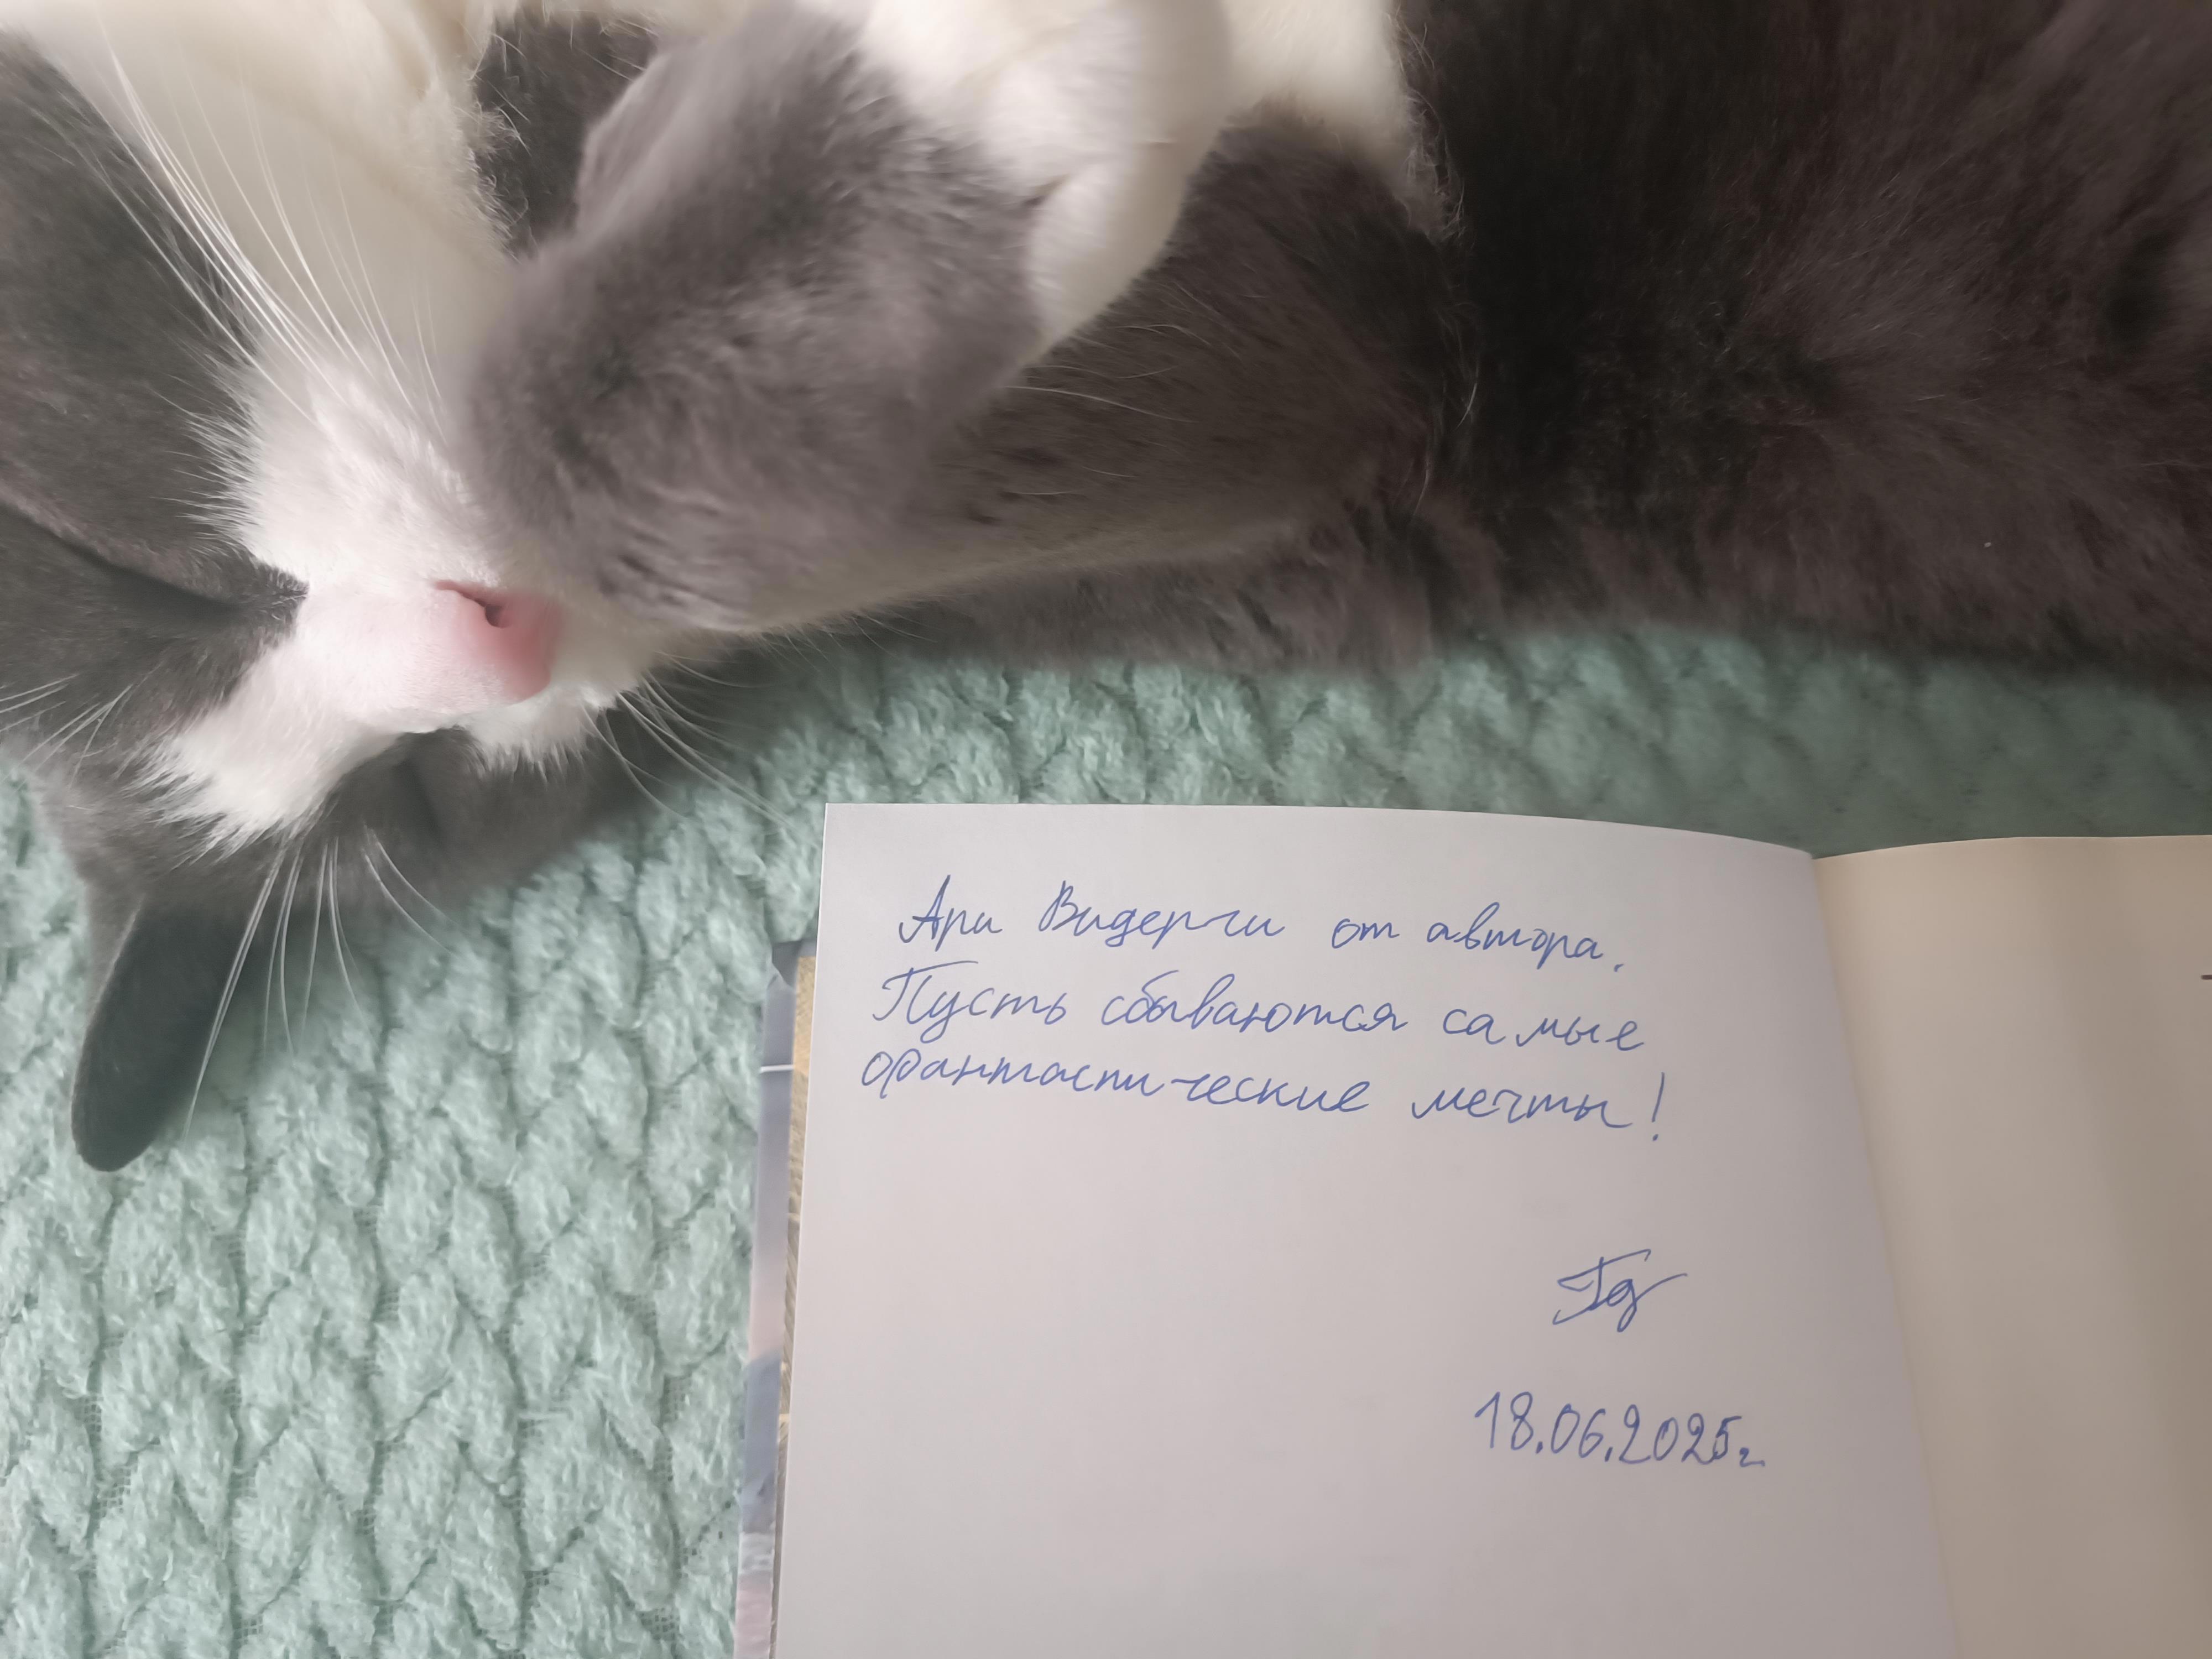 Ари Видерчи от автора.
Пусть сбываются самые
фантастические мечты!
18.06.2025г.